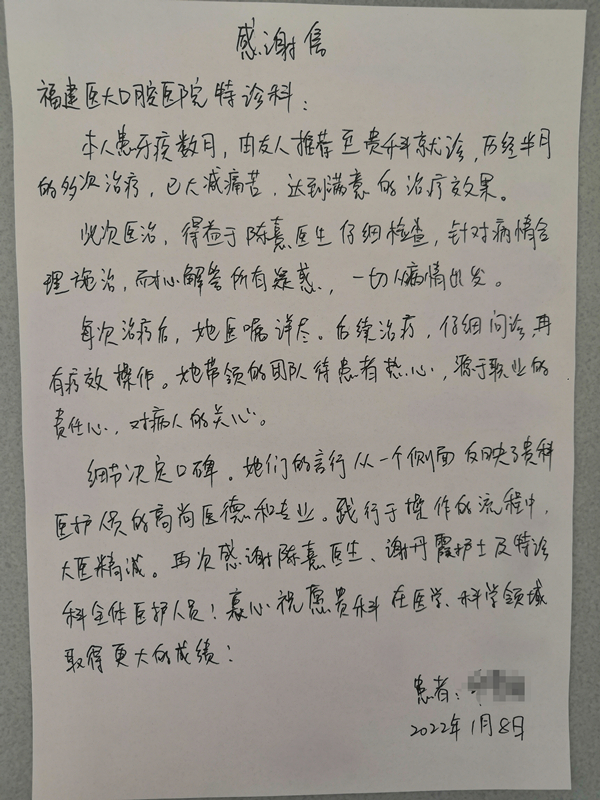 感谢信
福建医大口腔医院特诊科：
本人患牙疾数月，由友人推荐至贵科就诊，历经半月
的多次治疗，已大减痛苦，达到满意的治疗效果。
此次医治，得益于陈熹医生仔细检查，针对病情合
理施治，耐心解答所有疑惑，一切从病情出发。
每次治疗后，她医嘱详尽。后续治疗，仔细问诊，再
有疗效操作。她带领的团队待患者热心，源于职业的
责任心，对病人的关心。
细节决定口碑。她们的言行从一个侧面反映了贵科
医护人员的高尚医德和专业。践行于操作的流程中，
大医精诚。再次感谢陈熹医生、谢丹霞护士及特诊
科全体医护人员！衷心祝愿贵科在医学、科学领域
取得更大的成绩！
患者：
2022年1月8日